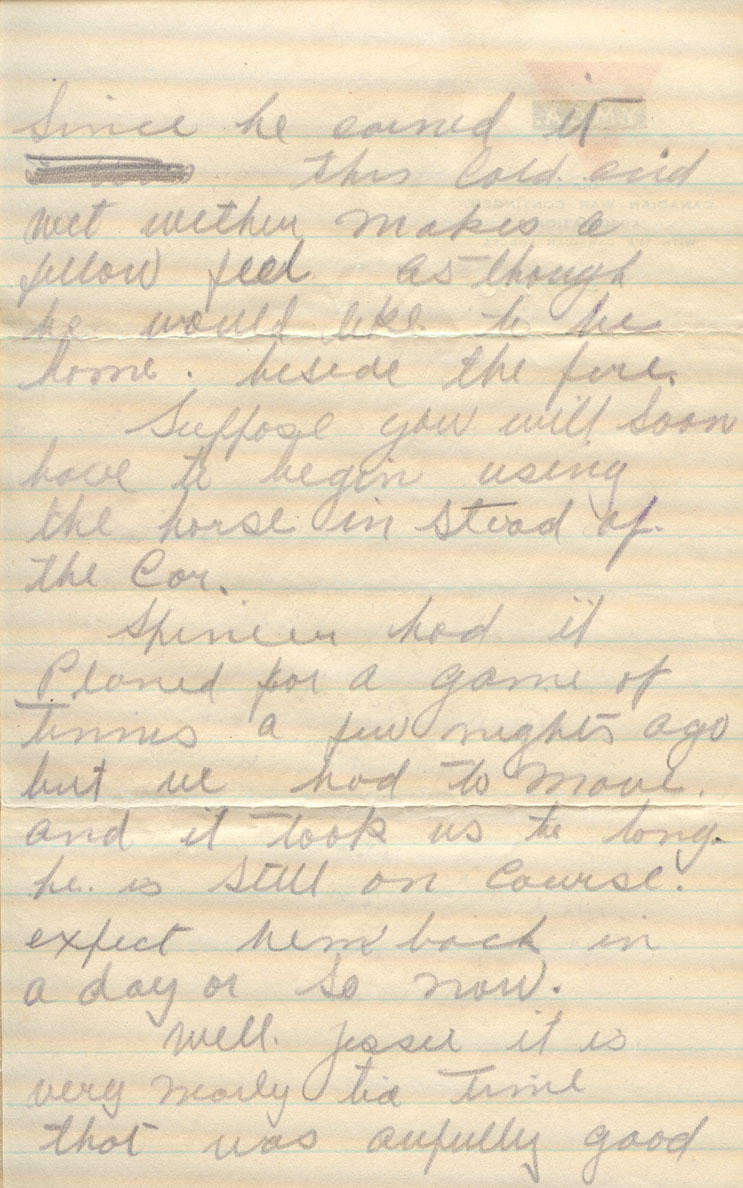 Since he earned it
this Cold and
wet wether makes a
fellow feel as though
he would like to be
home. beside the fire.
Suppose you will soon
have to begin using
the horse in stead of
the Car.
Spencer had it
Planed for a game of
tennis a few nights ago
but we had to move.
and it took us to long.
he. is still on Course.
expect him back in
a day or so now.
Well. Jessie it is
very nearly tea time
that was awfully good